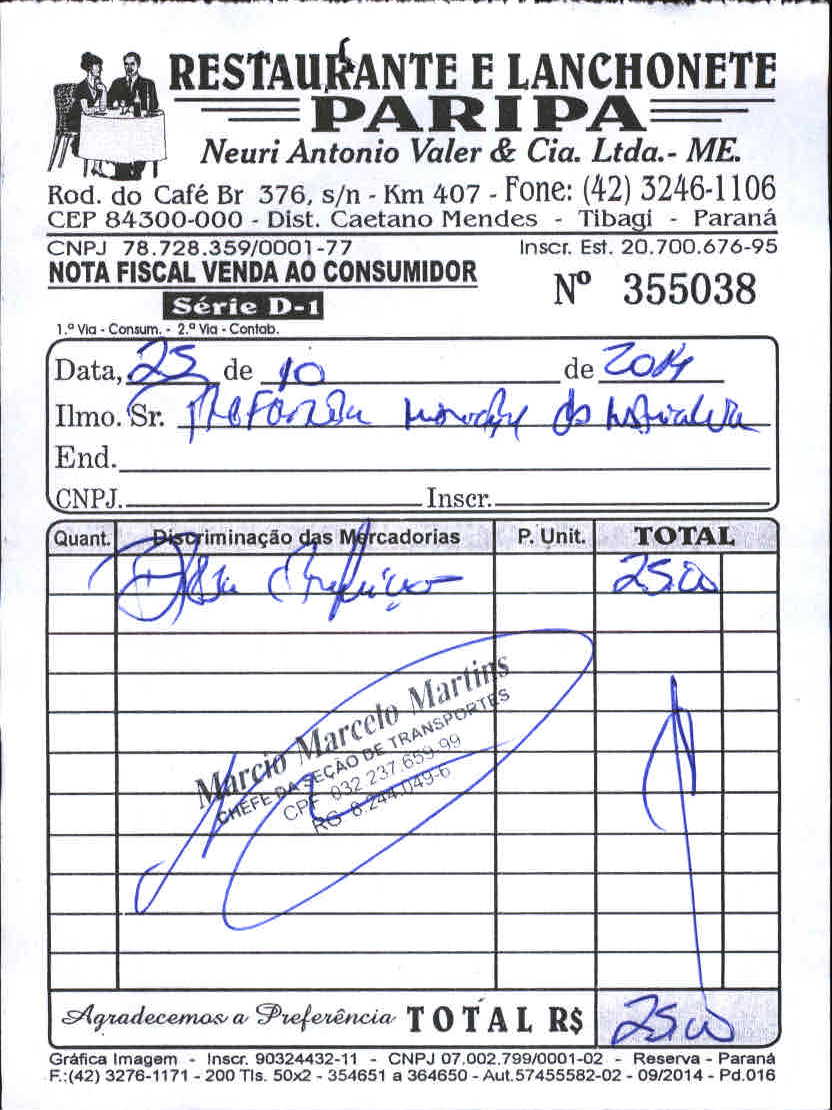 RESTAURANTE E LANCHONETE
PARIPA
Neuri Antonio Valer & Cia. Ltda.- ME.
Rod. do Café Br 376, s/n - Km 407 - Fone: (42) 3246-1106
CEP 84300-000 - Dist. Caetano Mendes - Tibagi - Paraná
CNPJ 78.728.359/0001-77 Inscr. Est. 20.700.676-95
NOTA FISCAL VENDA AO CONSUMIDOR
Nº 355038
Série D-1
1.ª Via - Consum. - 2.ª Via - Contab.
Data, 25 de 10 de 2014
Ilmo. Sr.
End.
CNPJ. Inscr.
Quant. Discriminação das Mercadorias P. Unit. TOTAL
25,00
Marcio Marcelo Martins
CHEFE DA SEÇÃO DE TRANSPORTES
CPF 032.237.659-99
RG 8.244.049-6
Agradecemos a Preferência TOTAL R$ 25,00
Gráfica Imagem - Inscr. 90324432-11 - CNPJ 07.002.799/0001-02 - Reserva - Paraná
F.:(42) 3276-1171 - 200 Tls. 50x2 - 354651 a 364650 - Aut.57455582-02 - 09/2014 - Pd.016